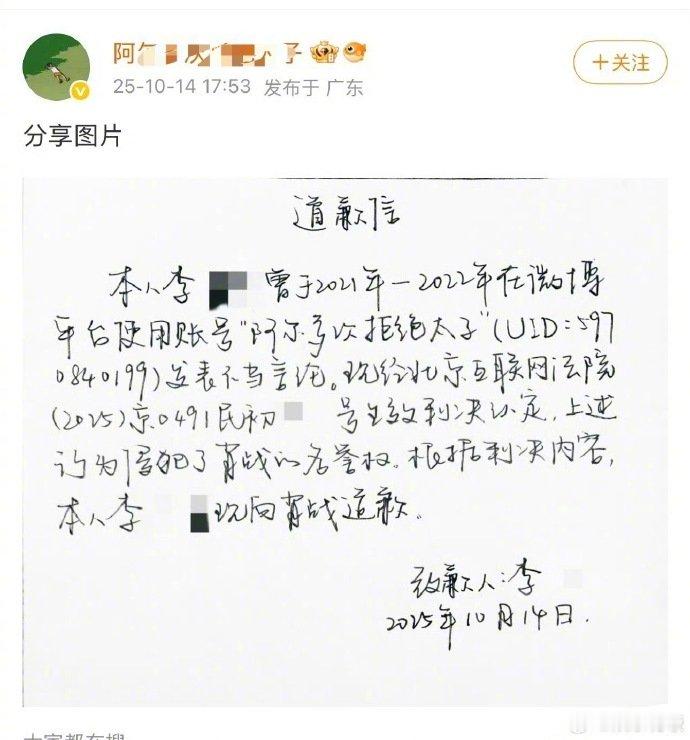 阿
子
+关注
25-10-14 17:53 发布于 广东
分享图片
道歉信
本人李 曾于2021年-2022年在微博
平台使用账号"阿尔多次拒绝太子"(UID:597
0840199)发表不当言论。现经北京互联网法院
(2025)京0491民初 号生效判决认定,上述
行为侵犯了肖战的名誉权。根据判决内容,
本人李 现向肖战道歉。
致歉人:李
2025年10月14日.
大家都在搜